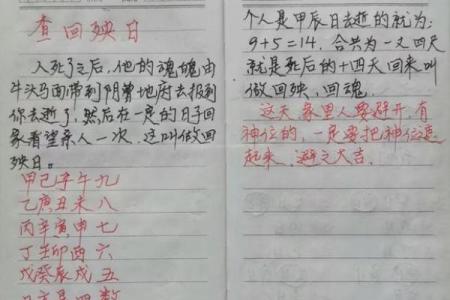 查回殃日
人死了之后，他的魂魄由
牛头马面带到阴曹地府去报到
你去逝了，然后在一定的日子回
家看望亲人一次，这叫做回
殃日。
甲己子午九
乙庚丑未八
丙辛寅申七
丁壬卯酉六
戊癸辰戌五
个人是甲辰日去逝的就为：
9+5=14，合共为一又四天
就是死后的十四天回来叫
做回殃，回魂。
这天家里人要避开，有
神位的，一定要把神位遮
起来，避之大吉。